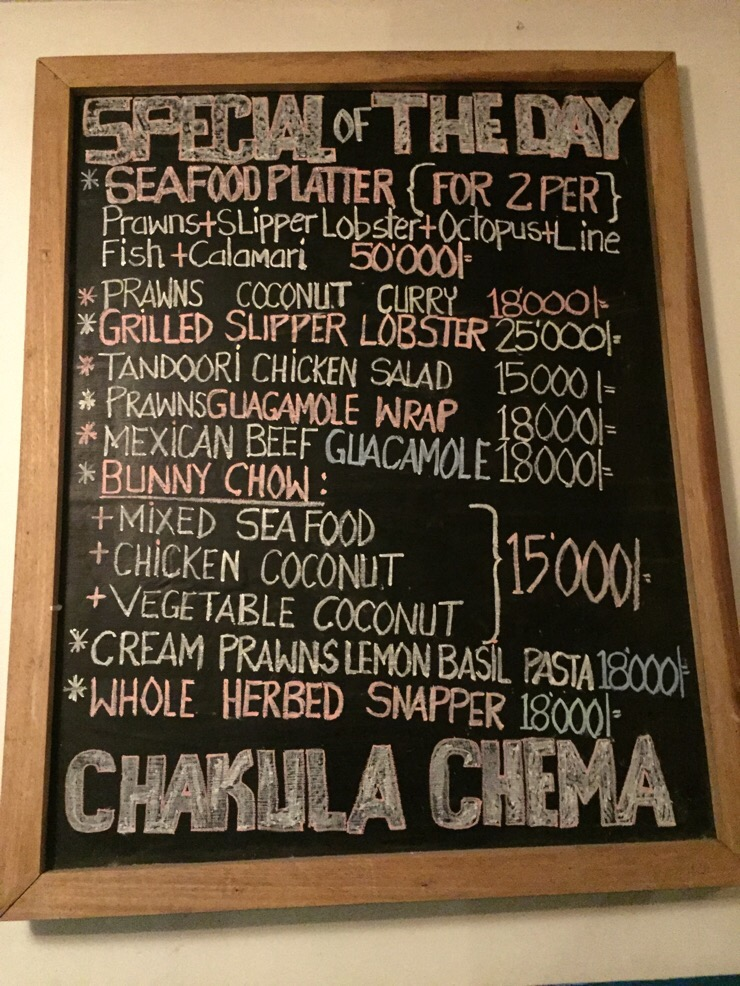 SPECIAL OF THE DAY
* SEAFOOD PLATTER {FOR 2 PER}
Prawns+SLipper Lobster+Octopus+Line
Fish +Calamari 50'000/=
* PRAWNS COCONUT CURRY 18000/=
* GRILLED SLIPPER LOBSTER 25'000/=
* TANDOORI CHICKEN SALAD 15000/=
* PRAWNS GUAGAMOLE WRAP 18000/=
* MEXICAN BEEF GUACAMOLE 18000/=
* BUNNY CHOW:
+ MIXED SEAFOOD
+ CHICKEN COCONUT } 15'000/=
+ VEGETABLE COCONUT
* CREAM PRAWNS LEMON BASIL PASTA 18'000/=
* WHOLE HERBED SNAPPER 18'000/=
CHAKULA CHEMA